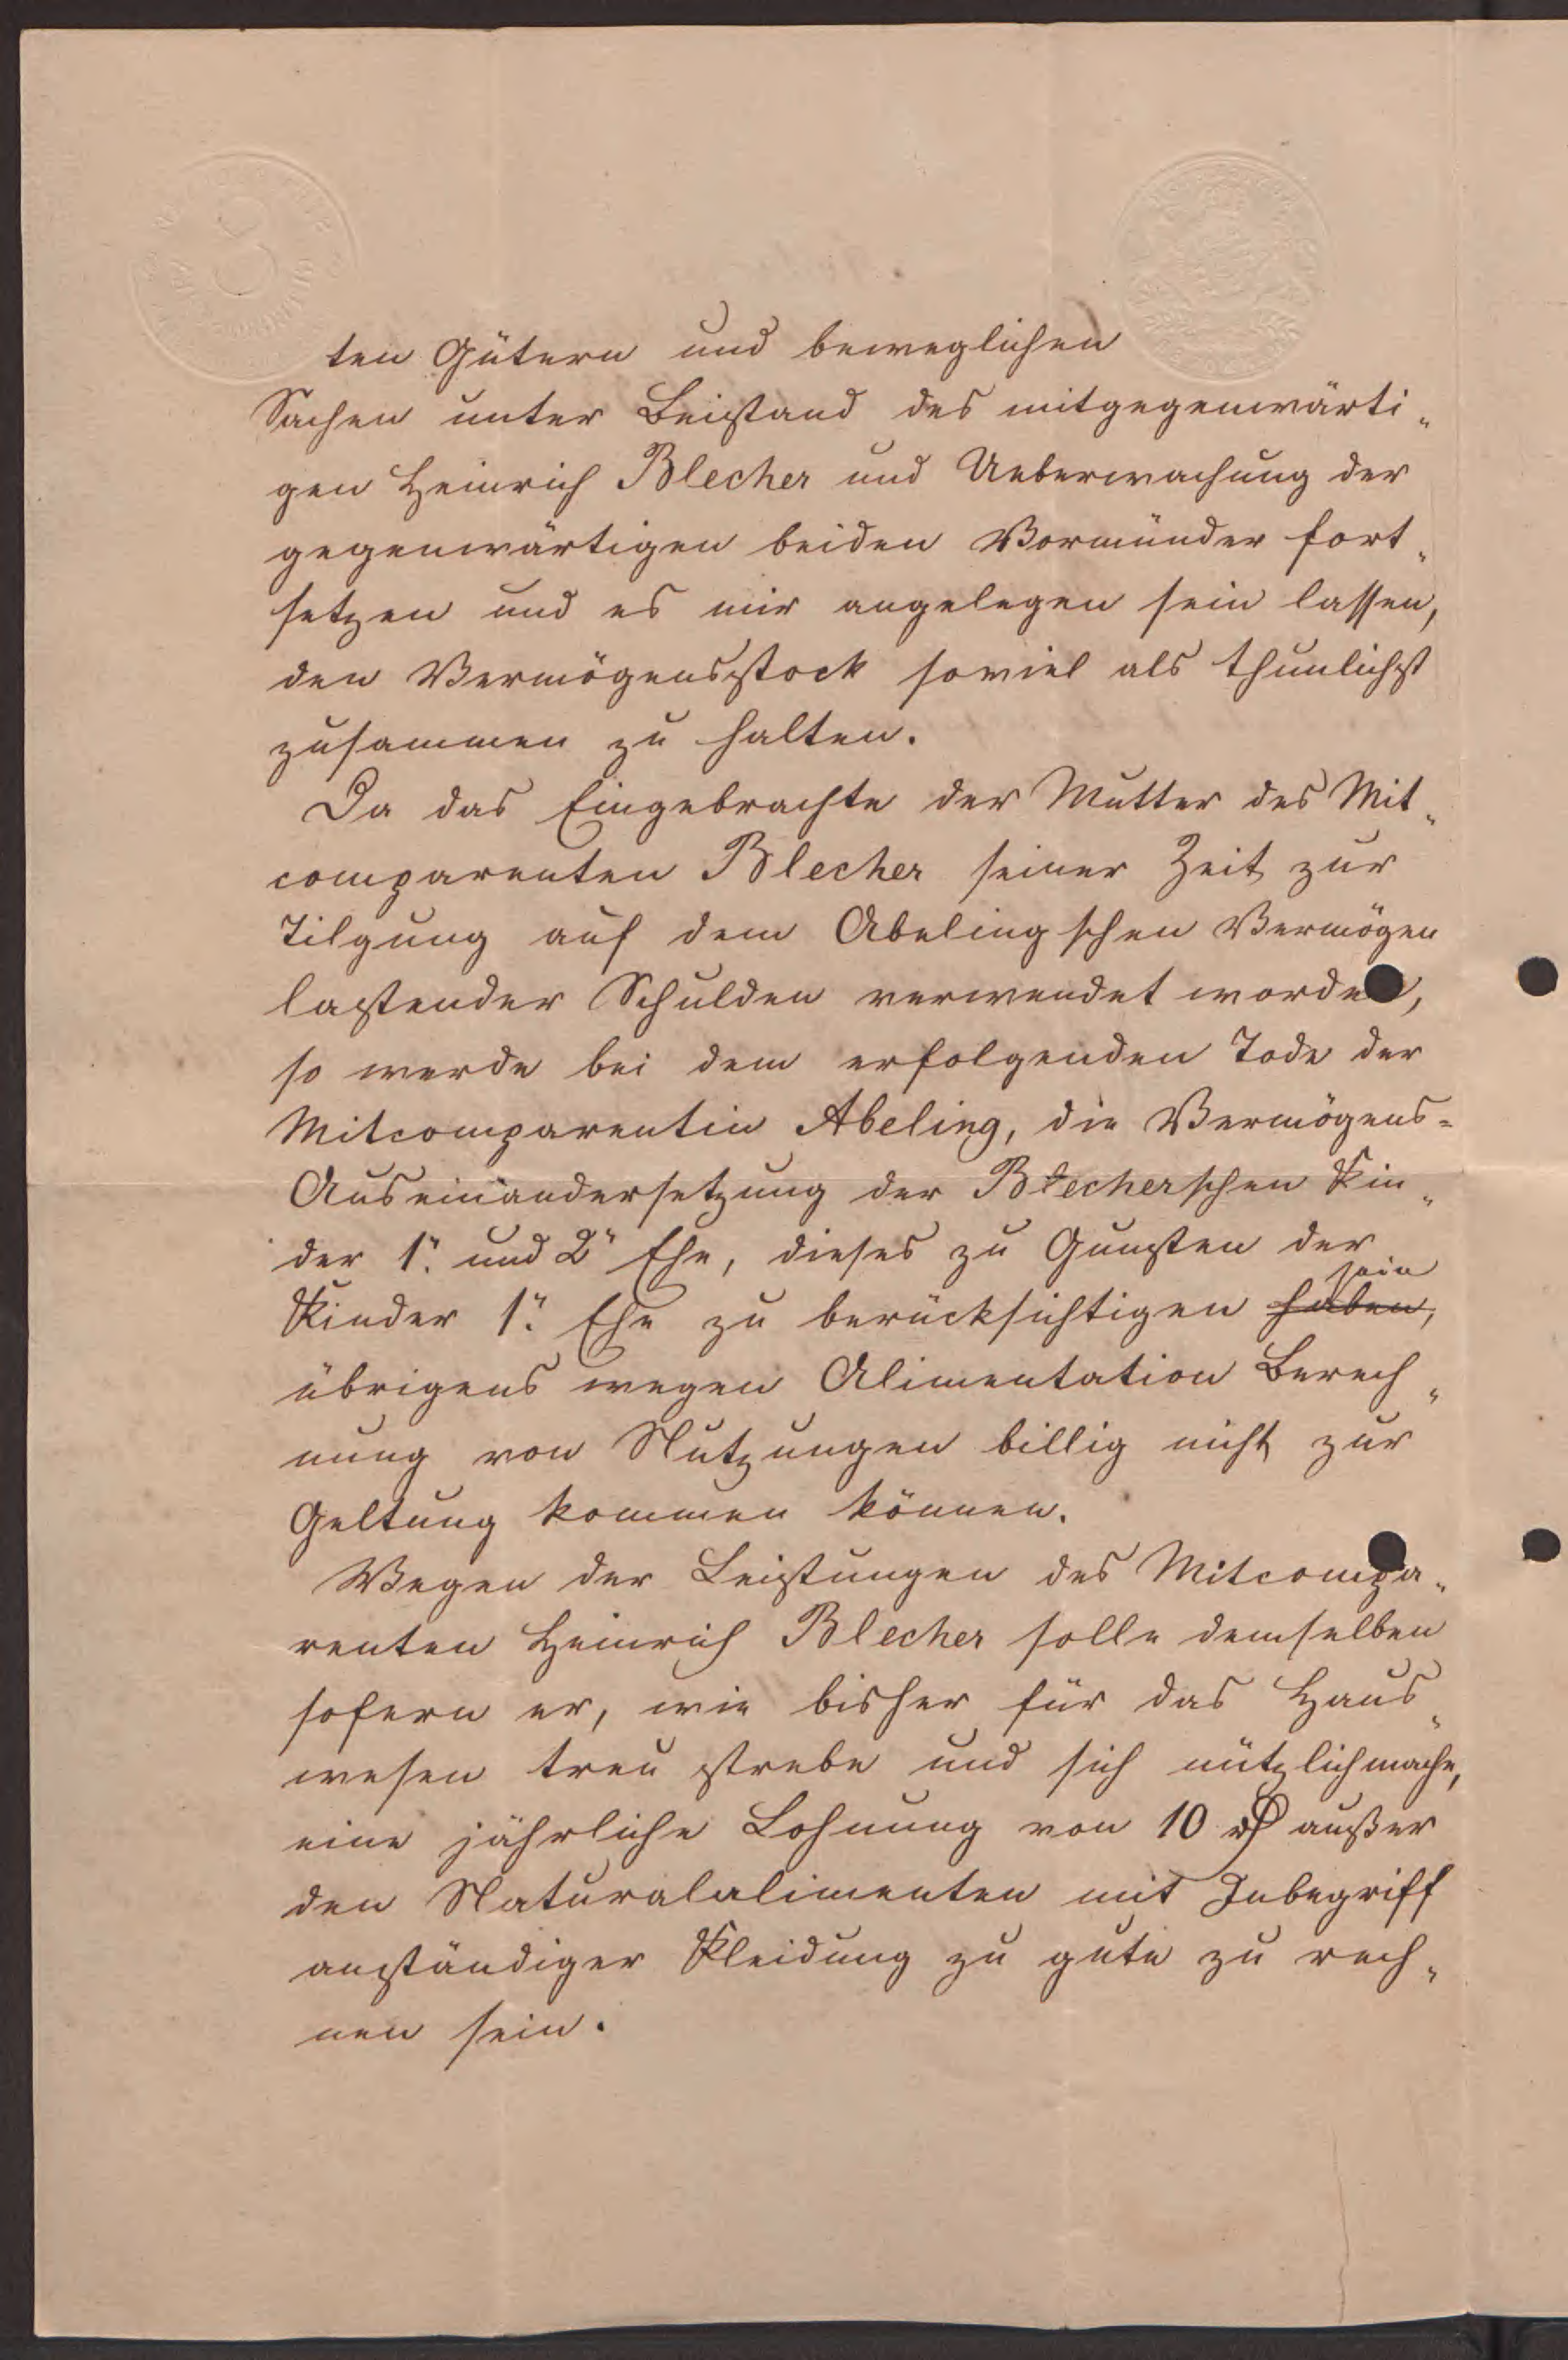 ten Gütern und beweglichen
Sachen unter Beistand des mitgegenwärti„
gen Heinrich Blecher und Ueberwachung der
gegenwärtigen beiden Vormünder fort„
setzen und es mir angelegen sein lassen,
den Vermögensstock soviel als thunlichst
zusammen zu halten.
Da das Eingebrachte der Mutter des Mit„
comparenten Blecher seiner Zeit zur
Tilgung auf dem Abelingschen Vermögen
lastender Schulden verwendet worden,
so werde bei dem erfolgenden Tode der
Mitcomparentin Abeling, die Vermögens=
Auseinandersetzung der Blecherschen Kin„
der 1r. und 2r Ehe, dieses zu Gunsten der
Kinder 1r. Ehe zu berücksichtigen haben, sein
übrigens wegen Alimentation Berech„
nung von Nutzungen billig nicht zur
Geltung kommen können.
Wegen der Leistungen des Mitcompa„
renten Heinrich Blecher solle demselben
sofern er, wie bisher für das Haus„
wesen treu strebe und sich nützlich mache,
eine jährliche Lohnung von 10 rß außer
den Naturalalimenten mit Inbegriff
anständiger Kleidung zu gute zu rech„
nen sein.